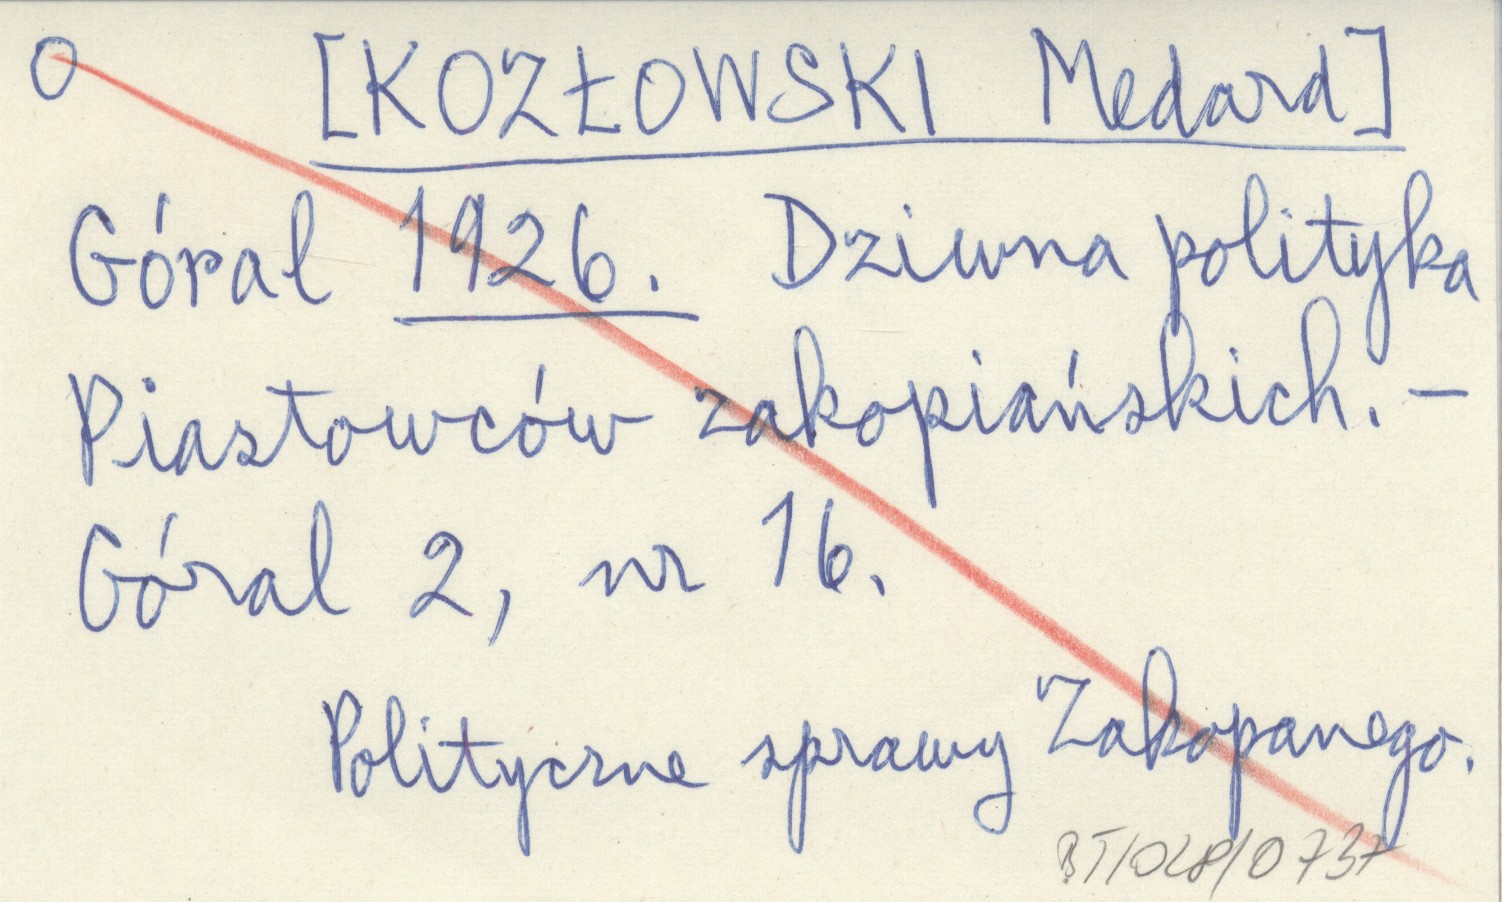 O [KOZŁOWSKI Medard]
Góral 1926. Dziwna polityka
Piastowców zakopiańskich. –
Góral 2, nr 16.
Polityczne sprawy Zakopanego.
BT/028/0737